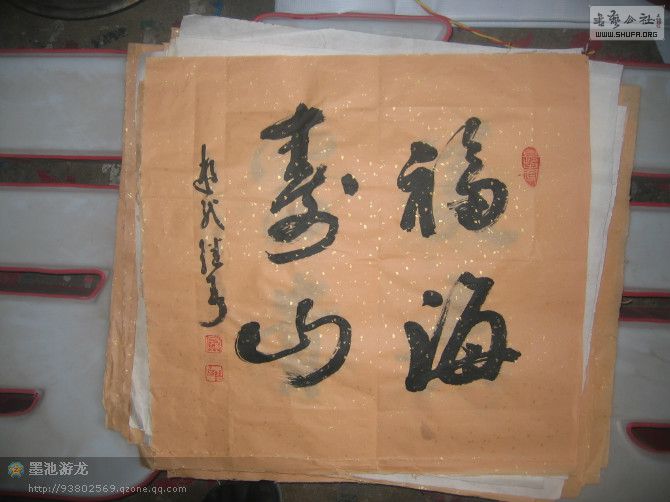 福海
寿山
书艺公社
WWW.SHUFA.ORG
墨池游龙
http://93802569.qzone.qq.com